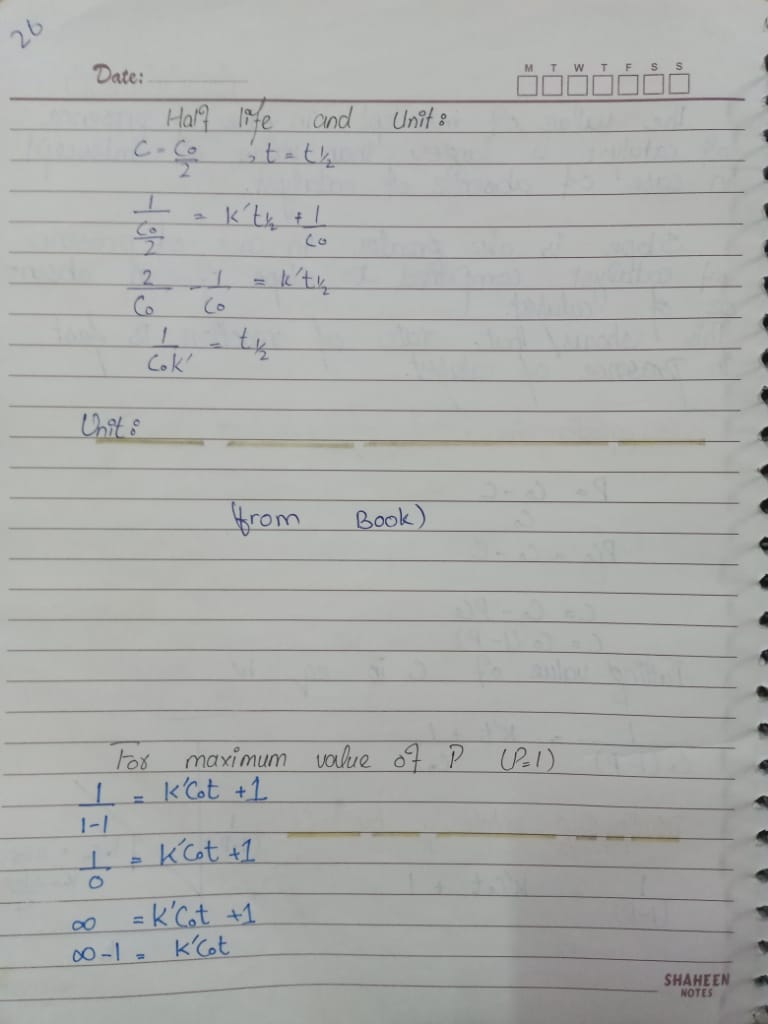 26
Date:
M T W T F S S
Half life and Unit:
C = C₀/2 , t = t½
1/(C₀/2) = k't½ + 1/C₀
2/C₀ - 1/C₀ = k't½
1/C₀k' = t½
Unit:
(from Book)
For maximum value of P (P=1)
1/(1-1) = k'C₀t + 1
1/0 = k'C₀t + 1
∞ = k'C₀t + 1
∞ - 1 = k'C₀t
SHAHEEN
NOTES